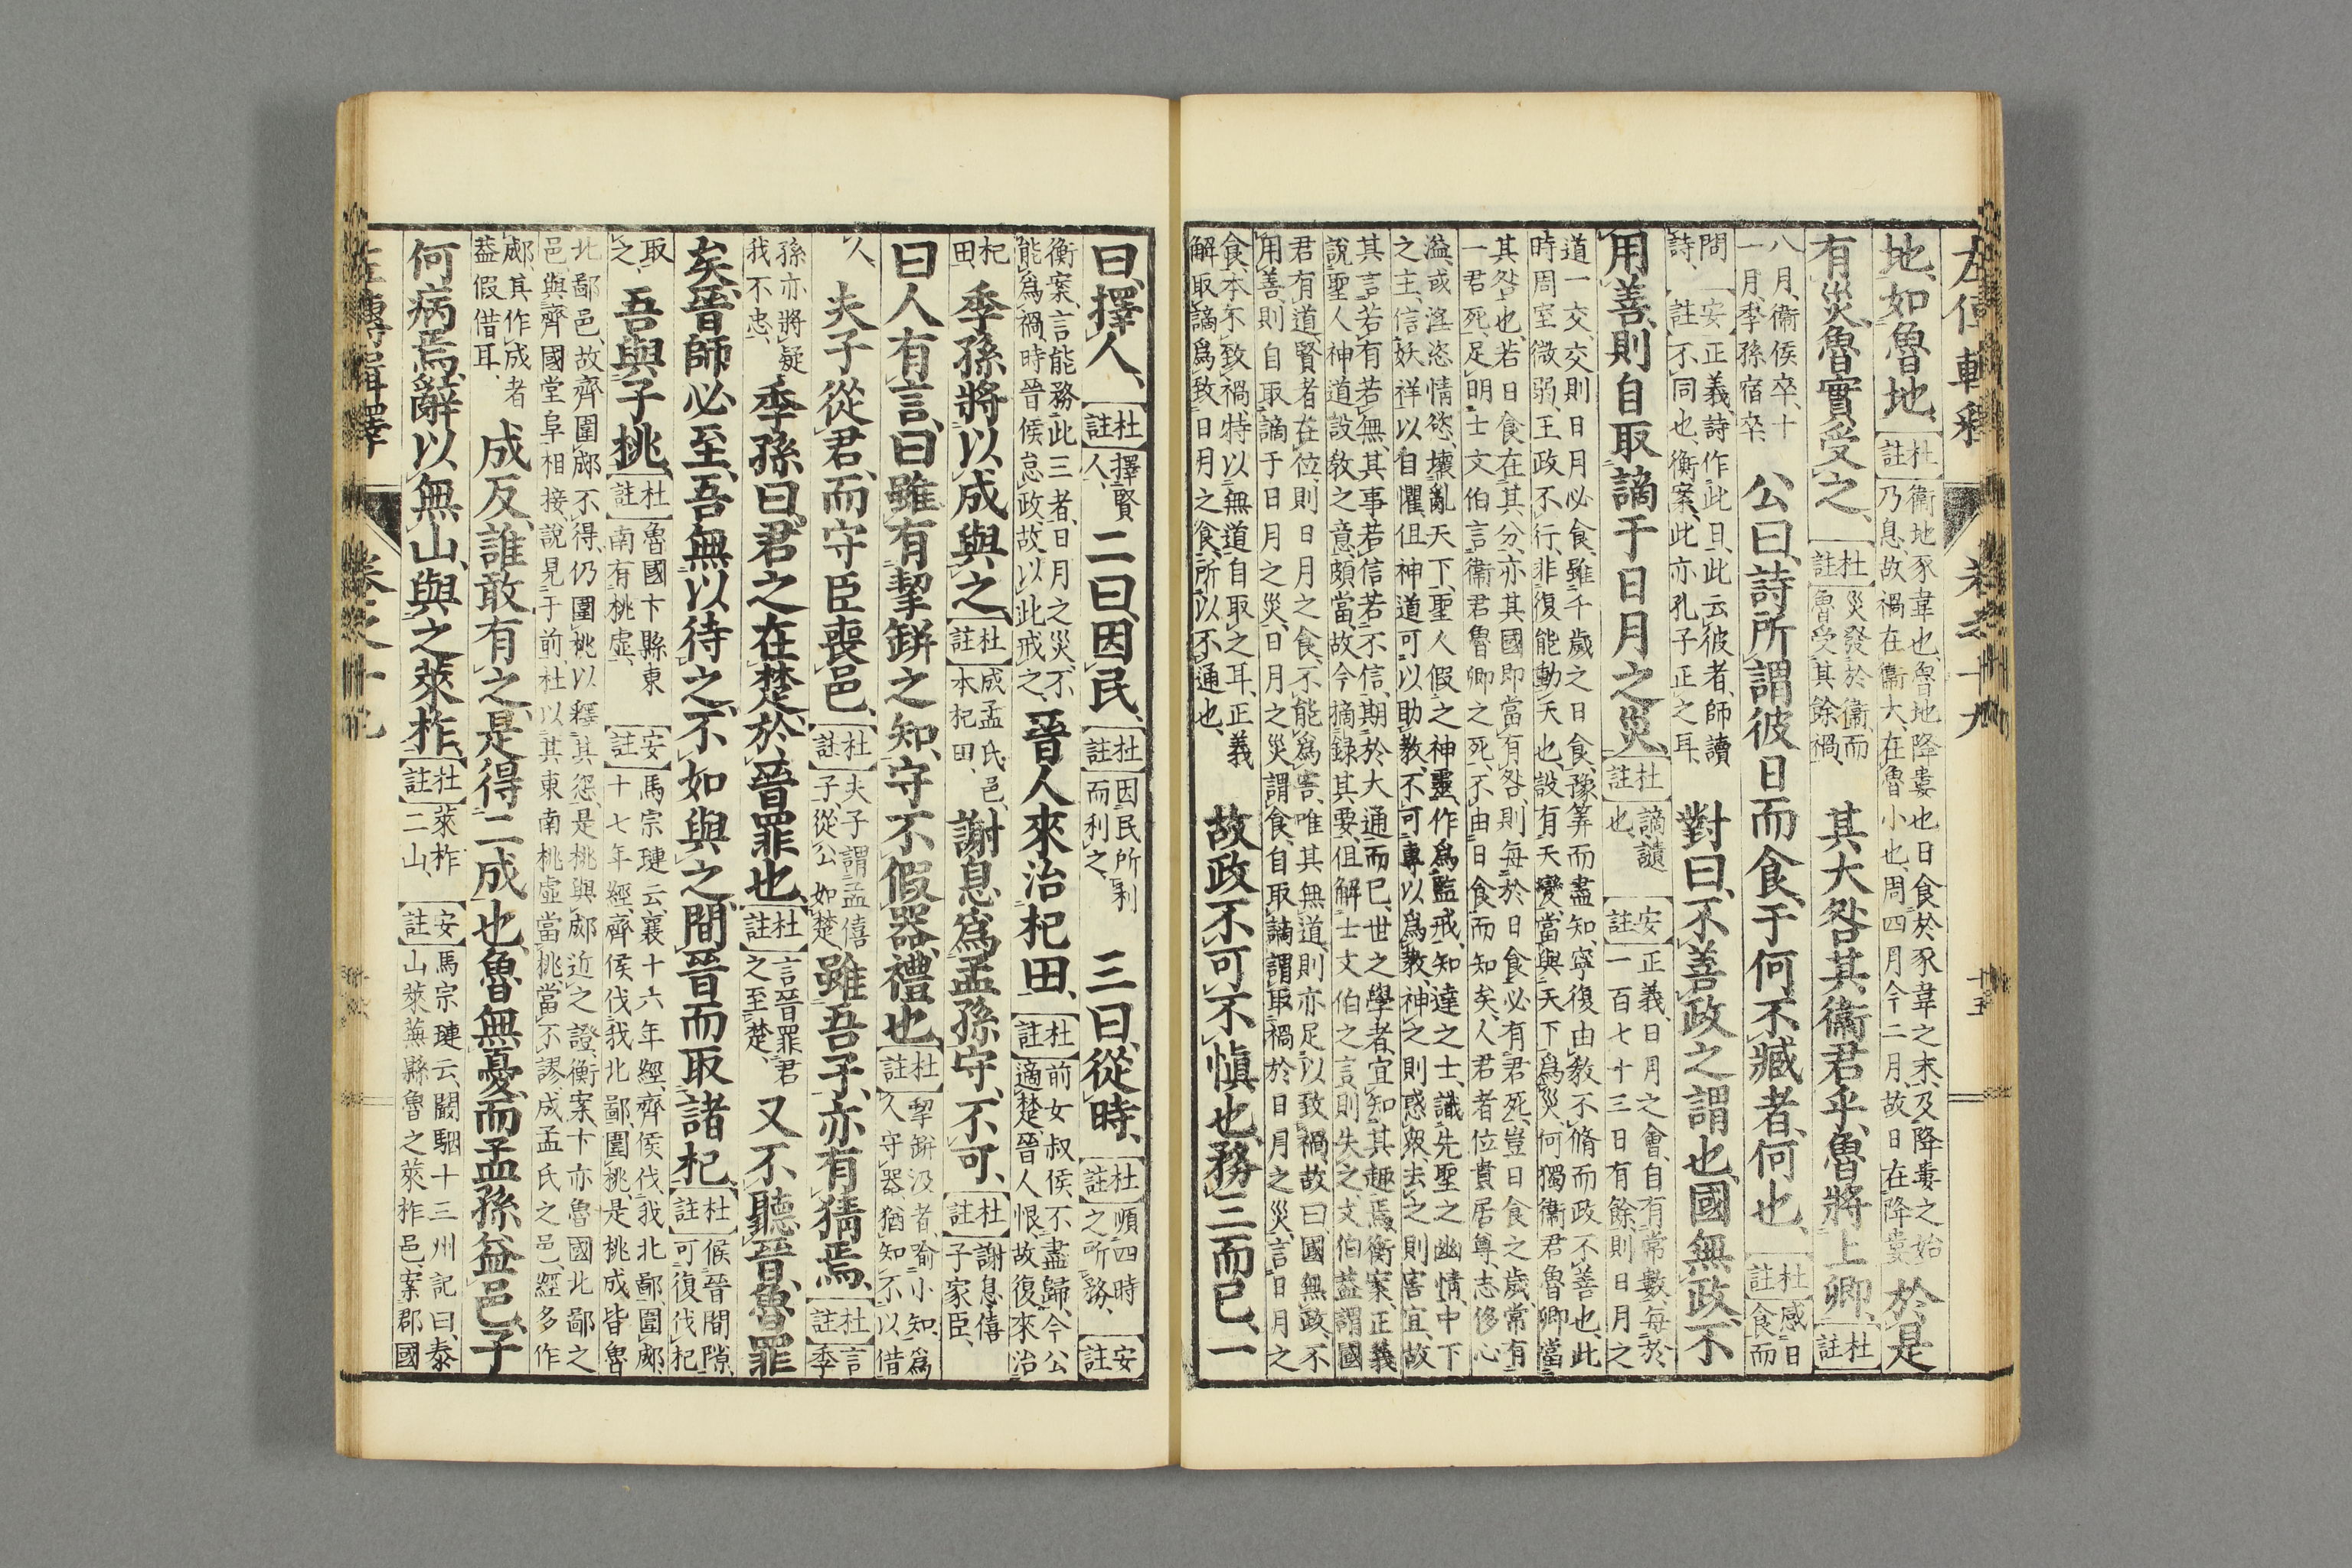 左傳輯釋 卷之十九 十五
地、如魯地、杜註衞地豕韋也、魯地降婁也、日食於豕韋之末、及降婁之始
乃息、故禍在衞大、在魯小也、周四月、今二月、故日在降婁 於是
有災、魯實受之、杜註災發於衞、而
魯受其餘禍、其大咎其衞君乎、魯將上卿、杜註
八月、衞侯卒、十
一月、季孫宿卒、公曰、詩所謂彼日而食、于何不臧者、何也、杜註感日
食而
問
詩、安註正義、詩作此日、此云彼者、師讀
不同也、衡案、此亦孔子正之耳、對曰、不善政之謂也、國無政、不
用善、則自取謫于日月之災、杜註謫譴
也、安註正義、日月之會、自有常數、每於
一百七十三日有餘、則日月之
道一交、交則日月必食、雖千歲之日食、豫筭而盡知、寧復由敎不脩而政不善也、此
時周室微弱、王政不行、非復能動天也、設有天變、當與天下爲災、何獨衞君魯卿當
其咎也、若日食在其分、亦其國即當有咎、則每於日食必有君死、豈日食之歲、常有
一君死、足明士文伯言衞君魯卿之死、不由日食而知矣、人君者位貴居尊、志侈心
溢、或淫恣情慾、壞亂天下、聖人假之神靈、作爲監戒、知達之士、識先聖之幽情、中下
之主、信妖祥以自懼、但神道可以助敎、不可專以爲敎、神之則惑衆、去之則害宜、故
其言若有若無、其事若信若不信、期於大通而已、世之學者、宜知其趣焉、衡案、正義
說聖人神道設敎之意、頗當、故今摘録其要、但解士文伯之言、則失之、文伯蓋謂國
君有道、賢者在位、則日月之食、不能爲害、唯其無道、則亦足以致禍、故曰國無政、不
用善、則自取謫于日月之災、日月之災謂食、自取謫謂取禍於日月之災、言日月之
食、本不致禍、特以無道自取之耳、正義
解取謫爲致日月之食、所以不通也、故政不可不愼也、務三而已、一
曰、擇人、杜註擇賢
人、二曰、因民、杜註因民所利
而利之、三曰、從時、杜註順四時
之所務、安註
衡案、言能務此三者、日月之災、不
能爲禍、時晉侯怠政、故以此戒之、晉人來治杞田、杜註前女叔侯、不盡歸、今公
適楚、晉人恨、故復來治
杞
田、季孫將以成與之、杜註成孟氏邑、
本杞田、謝息爲孟孫守、不可、杜註謝息僖
子家臣、
曰、人有言、曰、雖有挈缾之知、守不假器、禮也、杜註挈缾汲者、喻小知、爲
人守器、猶知不以借
人、夫子從君、而守臣喪邑、杜註夫子謂孟僖
子、從公如楚、雖吾子、亦有猜焉、杜註言季
孫亦將疑
我不忠、季孫曰、君之在楚、於晉罪也、杜註言晉罪君
之至楚、又不聽晉、魯罪
矣、晉師必至、吾無以待之、不如與之、間晉而取諸杞、杜註候晉間隙、
可復伐杞
取
之、吾與子桃、杜註魯國卞縣東
南有桃虛、安註馬宗璉云、襄十六年經、齊侯伐我北鄙、圍郕、
十七年經、齊侯伐我北鄙、圍桃、是桃成皆魯
北鄙邑、故齊圍郕不得、仍圍桃以釋其怨、是桃與郕近之證、衡案、卞亦魯國北鄙之
邑、與齊國堂阜相接、說見于前、杜以其東南桃虛當桃、當不謬、成孟氏之邑、經多作
郕、其作成者
蓋假借耳、成反、誰敢有之、是得二成也、魯無憂、而孟孫益邑、子
何病焉、辭以無山、與之萊柞、杜註萊柞
二山、安註馬宗璉云、闞駰十三州記曰、泰
山萊蕪縣、魯之萊柞邑、案郡國
左傳輯釋 卷之十九